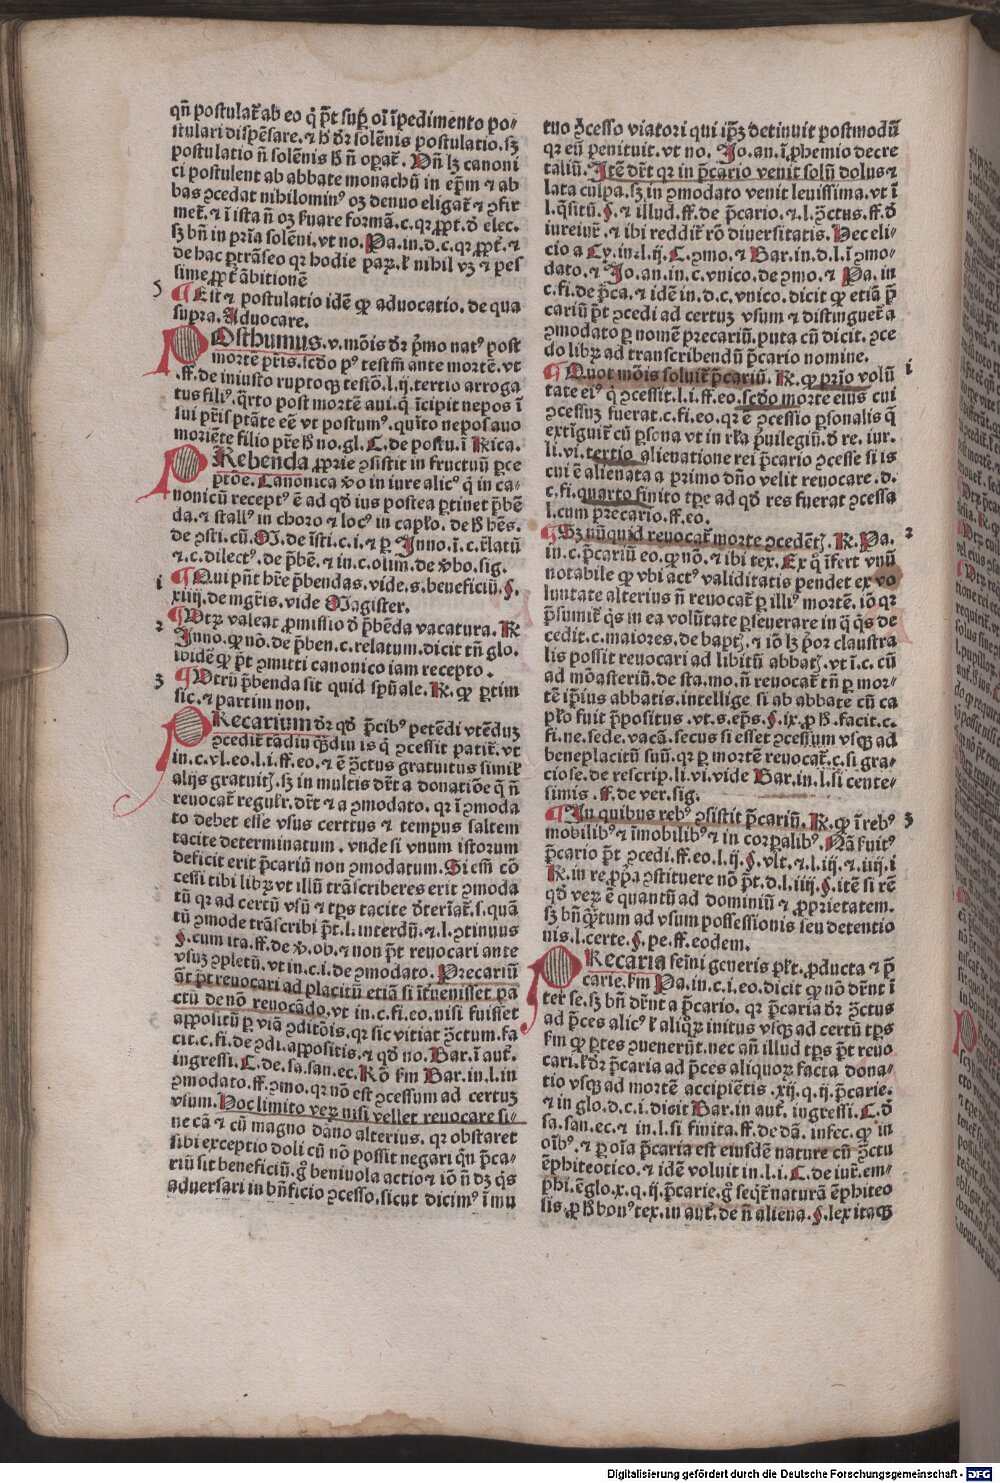 qn̄ postulat᷑ ab eo q̇ p̄t sup̱ oī īpedimento po⸗
stulari dispēsare.⁊ h̄ dr̄ solēnis postulatio. sꝫ
postulatio n̄ solēnis h̄ n̄ opat᷑. Vn̄ lꝫ canoni
ci postulent ab abbate monachū in ep̄m ⁊ ab
bas ꝯcedat nihilominꝰ oꝫ denuo eligat᷑ ⁊ ꝯfir
met᷑. ⁊ ī ista n̄ oꝫ ẜuare formā.c. qꝛ ꝓpt̄. đ elec.
sꝫ bn̄ in pria solēni. vt no. Pa. in. d.c. qꝛ ꝓpt̄. ⁊
de hac ꝑtrāseo qꝛ hodie paꝝ. ł nihil vꝫ ⁊ pes
sime ꝓpt̄ ābitionē
5
¶ Est ⁊ postulatio idē qꝙ aduocatio. de qua
supra. Aduocare.
POsthumus. v. mōis dr̄ pͥmo natꝰ post
morte pr̄is. scd̄o pꝰ testm̄ ante mortē. vt
.ff. de iniusto ruptoqꝫ testō. l. ij. tertio arroga
tus filiꝰ. qͣrto post mortē aui. q̇ īcipit nepos ī
lui pr̄is ptāte eē vt postumꝰ. quīto nepos auo
moriēte filio pr̄e h̄ no. gl. C. de postu. ī Rica.
PRebenda ꝓprie ꝯsistit in fructuū ꝑce
ptōe. Canonica ꝟo in iure alicꝰ q̇ in ca⸗
nonicū receptꝰ ē ad qd̄ ius postea ꝑtinet p̄bē
da. ⁊ stallꝰ in choro ⁊ locꝰ in capło. de h̄ hēs.
de p̄sti. cū. M. de īsti. c. i. ⁊ ꝑ Inno. ī. c. r̄latū
⁊. c. dilectꝰ. de p̄bē. ⁊ in. c. olim. de ꝟbo. sig.
i
¶ Qui pn̄t hr̄e p̄bendas. vide. s. beneficiū. §.
xiiij. de mgr̄is. vide Magister.
2
¶ Vtꝝ valeat ꝓmissio đ p̄bēda vacatura. R̄
Inno. qꝙ nō. de p̄ben. c. relatum. dicit tn̄ glo.
ibidē qꝙ p̄t ꝯmitti canonico iam recepto.
3
¶ Vtrū p̄benda sit quid spūale. R̄. qꝙ ꝑtim
sic. ⁊ partim non.
PRecarium dr̄ qd̄ p̄cibꝰ petēdi vtēduꝫ
ꝯcedit᷑ tādiu qͣdiu is q̇ ꝯcessit patit᷑. vt
in. c. vl. eo. l. i. ff. eo. ⁊ ē ꝯtractus gratuitus simił
alijs gratuitꝭ. sꝫ in multis dr̄t a donatiōe q̇ n̄
reuocat᷑ regulr̄. dr̄t ⁊ a ꝯmodato. qꝛ ī ꝯmoda
to debet esse vsus certtus ⁊ tempus saltem
tacite determinatum. vnde si vnum istorum
deficit erit p̄cariū non ꝯmodatum. Si em̄ cō
cessi tibi librꝫ vt illū trāscriberes erit ꝯmoda
tū qꝛ ad certū vsū ⁊ tp̄s tacite đterīat᷑. s. quā
tū ꝯmode trāscribi p̄t. l. interdū. ⁊. l. ꝯtinuus
§. cum ita. ff. de ꝟ. ob. ⁊ non p̄t reuocari ante
vsuꝫ ꝯpletū. vt in. c. i. de ꝯmodato. Precariū
āt p̄t reuocari ad placitū etiā si īt̄uenisset pa
ctū de nō reuocādo. vt in. c. fi. eo. nisi fuisset
appositū ꝑ viā ꝯditōis. qꝛ sic vitiat ꝯtractum. fa
cit. c. fi. de ꝯdi. appositis. ⁊ qd̄ no. Bar. ī aut̄.
ingressi. C. de sa. san. ec. Rō fm Bar. in. l. in
ꝯmodato. ff. ꝯmo. qꝛ nō est ꝯcessum ad certuꝫ
vsum. Hoc limito veꝝ nisi vellet reuocare si⸗
ne cā ⁊ cū magno dāno alterius. qꝛ obstaret
sibi exceptio doli cū nō possit negari qͥn p̄ca⸗
riū sit beneficiū. gͦ beniuola actio ⁊ iō n̄ dꝫ qͥs
aduersari in bn̄ficio ꝯcesso. sicut dicimꝰ ī mu
tuo ꝯcesso viatori qui ip̄ꝫ detinuit postmodū
qꝛ eū penituit. vt no. Jo. an. ī ꝓhemio decre
taliū. Itē dr̄t qꝛ in p̄cario venit solū dolus ⁊
lata culpa. sꝫ in ꝯmodato venit leuissima. vt ī
l. q̄sitū. §. ⁊ illud. ff. de p̄cario. ⁊. l. ꝯtractus. ff. đ
iureiur̄. ⁊ ibi reddit᷑ rō diuersitatis. Nec eli⸗
cio a Cy. in. l. ij. C. ꝯmo. ⁊ Bar. in. d. l. ī ꝯmo⸗
dato. ⁊ Jo. an. in. c. vnico. de ꝯmo. ⁊ Pa. in
c. fi. de p̄ca. ⁊ idē in. d. c. vnico. dicit qꝙ etiā p̄
cariū p̄t ꝯcedi ad certuꝫ vsum ⁊ distinguet᷑ a
ꝯmodato ꝑ nomē precariū. puta cū dicit. ꝯce
do librꝫ ad transcribendū p̄cario nomine.
i
¶ Quot mōis soluit᷑ p̄cariū. R̄. qꝙ prīo volū
tate eiꝰ q̇ ꝯcessit. l. i. ff. eo. scd̄o morte eius cui
ꝯcessuꝫ fuerat. c. fi. eo. qꝛ ē ꝯcessio ꝑsonalis q̄
extīguit᷑ cū ꝑsona vt in r̄ła p̄uilegiū. đ re. iur.
li. vi. tertio alienatione rei p̄cario ꝯcesse si is
cui ē alienata a primo dn̄o velit reuocare. d.
c. fi. quarto finito tp̄e ad qd̄ res fuerat ꝯcessa
l. cum precario. ff. eo.
2
¶ Sꝫ nūquid reuocat᷑ morte ꝯcedētꝭ. R̄. Pa.
in. c. p̄cariū eo. qꝙ nō. ⁊ ibi tex. Ex q̇ īfert vnū
notabile qꝙ vbi actꝰ validitatis pendet ex vo
luntate alterius n̄ reuocat᷑ ꝑ illiꝰ mortē. iō qꝛ
p̄sumit᷑ qͥs in ea volūtate ꝑseuerare in q̇ qͥs de
cedit. c. maiores. de baptꝭ. ⁊ iō lꝫ pͥor claustra
lis possit reuocari ad libitū abbatꝭ. vt ī. c. cū
ad mōasteriū. de sta. mo. n̄ reuocat᷑ tn̄ ꝑ mor⸗
tē ip̄ius abbatis. intellige si ab abbate cū ca
pło fuit p̄positus. vt. s. ep̄s. §. ix. ꝓ h̄. facit. c.
fi. ne. sede. vacā. secus si esset ꝯcessum vsqꝫ ad
beneplacitū suū. qꝛ ꝑ mortē reuocat᷑. c. si gra⸗
ciose. de rescrip. li. vi. vide Bar. in. l. si cente⸗
simis. ff. de ver. sig.
3
¶ In quibus rebꝰ ꝯsistit p̄cariū. R̄. qꝙ ī rebꝰ
mobilibꝰ ⁊ īmobilibꝰ ⁊ in corꝑalibꝰ. Nā ẜuitꝰ
p̄cario p̄t ꝯcedi. ff. eo. l. ij. §. vlt. ⁊. l. iij. ⁊ iiij. i
R̄. in re ꝓpͥa ꝯstituere nō p̄t. d. l. iiij. §. itē si rē
qd̄ veꝝ ē quantū ad dominiū ⁊ ꝓprietatem.
sꝫ bn̄ qͣtum ad vsum possessionis seu detentio
nis. l. certe. §. pe. ff. eodem.
PRecaria feīni generis płr̄. ꝓducta ⁊ p̄
carie. fm Pa. in. c. i. eo. dicit qꝙ nō dr̄nt ī
ter se. sꝫ bn̄ dr̄nt a p̄cario. qꝛ p̄caria dr̄ ꝯtractus
ad p̄ces alicꝰ ł aliqͥꝝ initus vsqꝫ ad certū tp̄s
fm qꝙ ꝑtes ꝯuenerūt. nec an̄ illud tp̄s p̄t reuo
cari. ł dr̄ p̄caria ad p̄ces aliquoꝝ facta dona⸗
tio vsqꝫ ad mortē accipiētis. xij. q. ij. p̄carie.
⁊ in glo. d. c. i. dixit Bar. in aut̄. ingressi. C. đ
sa. san. ec. ⁊ in. l. si finita. ff. de dā. infec. qꝙ in
oībꝰ. ⁊ ꝑ oīa p̄caria est eiusdē nature cū ꝯtractu
ēphiteotico. ⁊ idē voluit in. l. i. C. de iur̄. em⸗
phi. ē glo. x. q. ij. p̄carie. gͦ seq̇t᷑ naturā ēphiteo
sis. ꝓ h̄ bonꝰ tex. in aut̄. de n̄ aliena. §. lex itaqꝫ
Digitalisierung gefördert durch die Deutsche Forschungsgemeinschaft - DFG